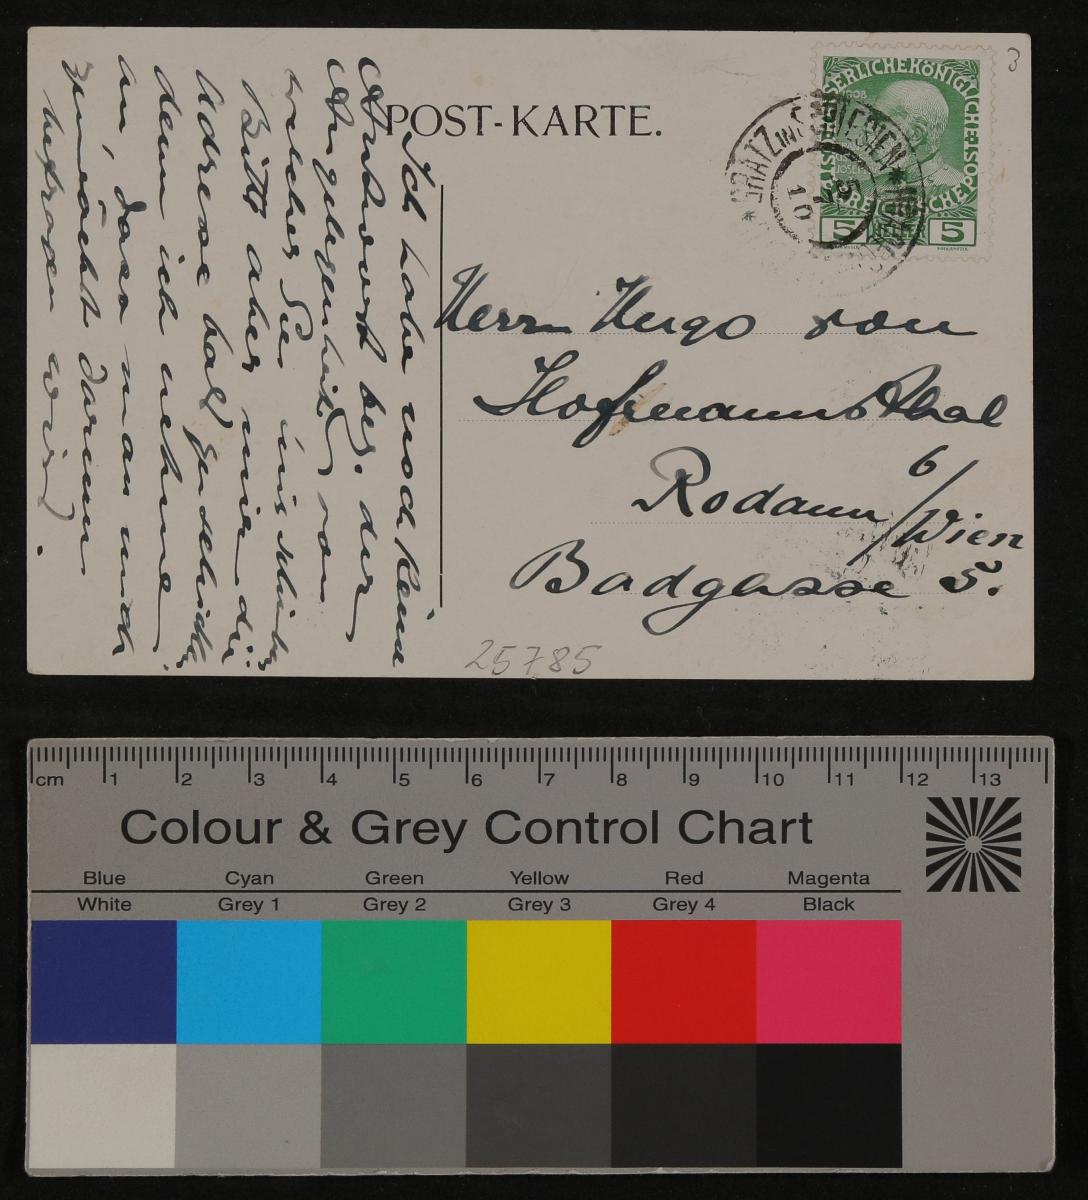 POST-KARTE.
3
1908
SERLICHEKÖNIGLICHE
POST
GRÄTZ IN SCHLESIEN
10
5 HELLER 5
Ich habe noch keine
Antwort bez. der
Angelegenheit von
welcher Sie
Bitte aber mir die
Adresse bald zu schicken,
denn ich nehme
an, dass man mich
zunächst darum
befragen wird.
Herrn Hugo von
Hofmannsthal
Rodaun 6/Wien
Badgasse 5.
25785
cm 1 2 3 4 5 6 7 8 9 10 11 12 13
Colour & Grey Control Chart
Blue Cyan Green Yellow Red Magenta
White Grey 1 Grey 2 Grey 3 Grey 4 Black